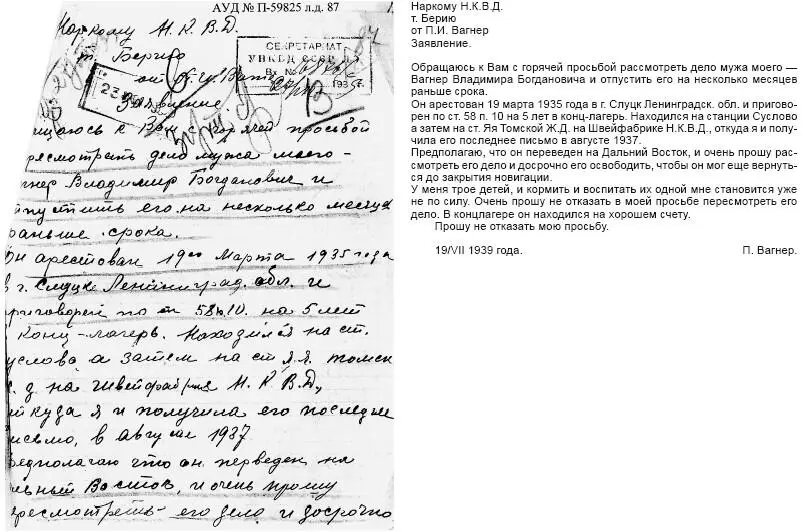 АУД № П-59825 л.д. 87
Наркому Н.К.В.Д.
т. Берию
от П.И. Вагнер
СЕКРЕТАРИАТ
УНКВД СССР
Вх №
193
23
Заявление
щаюсь к Вам с горячей просьбой
ресмотреть дело мужа моего-
гнер Владимир Богданович и
пустить его на несколько месяцев
раньше срока.
Он арестован 19го Марта 1935 года
в г. Слуцке Ленинград. обл. и
риговорен по ст 58 п 10. на 5 лет
конц-лагерь. Находился на ст.
услова а затем на ст Яя. томск
ж. д на швейфабрике Н. К В.Д,
ткуда я и получила его последне
исьмо, в августе 1937
редполагаю что он переведен на
льный Восток, и очень прошу
ресмотреть его дело и досрочно
Наркому Н.К.В.Д.
т. Берию
от П.И. Вагнер
Заявление.
Обращаюсь к Вам с горячей просьбой рассмотреть дело мужа моего —
Вагнер Владимира Богдановича и отпустить его на несколько месяцев
раньше срока.
Он арестован 19 марта 1935 года в г. Слуцк Ленинградск. обл. и пригово-
рен по ст. 58 п. 10 на 5 лет в конц-лагерь. Находился на станции Суслово
а затем на ст. Яя Томской Ж.Д. на Швейфабрике Н.К.В.Д., откуда я и полу-
чила его последнее письмо в августе 1937.
Предполагаю, что он переведен на Дальний Восток, и очень прошу рас-
смотреть его дело и досрочно его освободить, чтобы он мог еще вернуть-
ся до закрытия новигации.
У меня трое детей, и кормить и воспитать их одной мне становится уже
не по силу. Очень прошу не отказать в моей просьбе пересмотреть его
дело. В концлагере он находился на хорошем счету.
Прошу не отказать мою просьбу.
19/VII 1939 года. П. Вагнер.